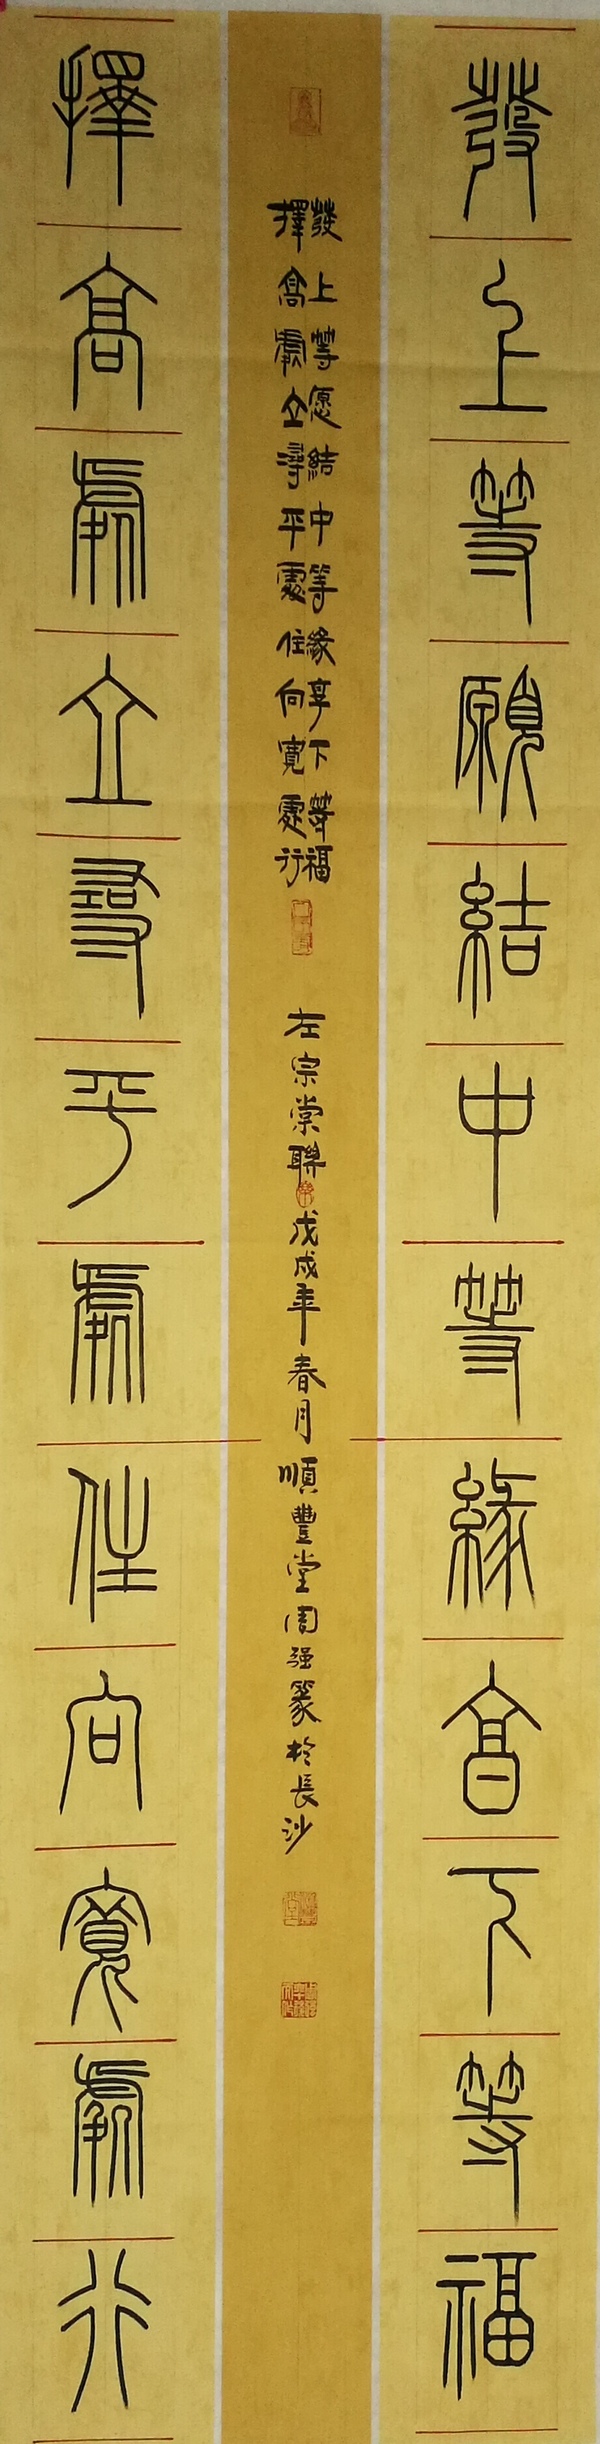 發上等願結中等緣享下等福
擇高處立尋平處住向寬處行
發上等愿結中等緣享下等福
擇高處立尋平處住向寬處行
左宗棠聯戊戌年春月順豐堂周强篆於長沙